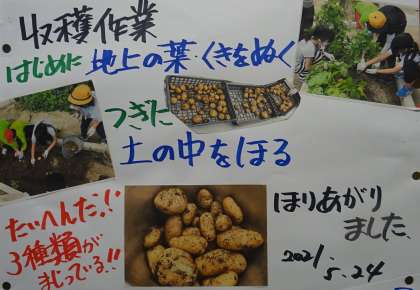 収穫作業
はじめに 地上の葉・くきをぬく
つぎに
土の中をほる
たいへんだ!!
3種類が
まじっている!!
ほりあがり
ました.
2021.
5.24